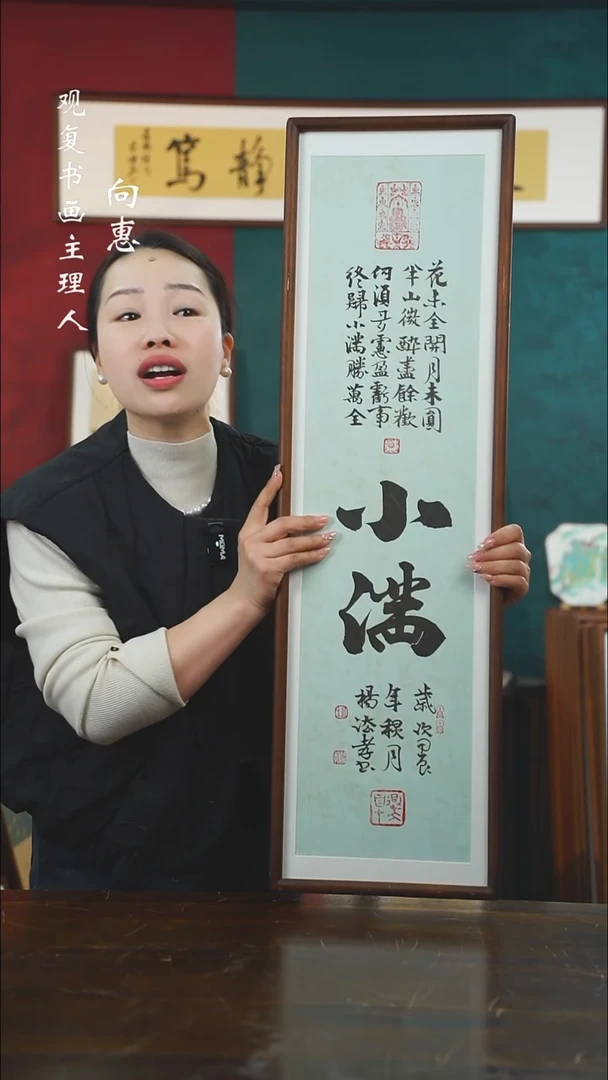 观复书画主理人
向惠
靜篤
花未全開月未圓
半山微醉盡餘歡
何須多慮盈虧事
終歸小滿勝萬全
小滿
歲次甲辰
年 月
楊 孝书
MOMA